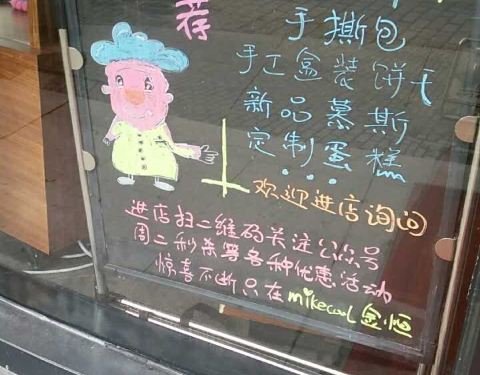 荐
手撕包
手工盒装饼干
新品慕斯
定制蛋糕
...
欢迎进店询问
进店扫二维码关注公众号
周二秒杀等各种优惠活动
惊喜不断只在mikecool金恒